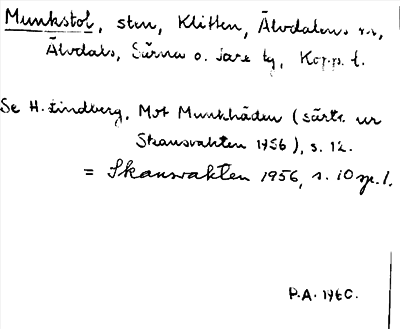 Munkstol, sten, Klitten, Älvdalens sn,
Älvdals, Särna o. Idre tg, Kopp. l.
Se H. Lindberg, Mot Munkhäden (särtr. ur
Skansvakten 1956), s. 12.
= Skansvakten 1956, s. 10 sp. 1.
P.A. 1960.